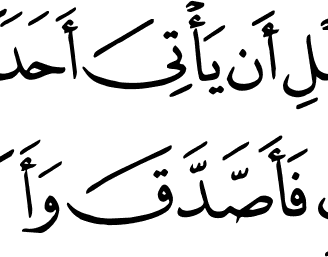 لِ أَن يَأْتِىَ أَحَدَ
فَأَصَّدَّقَ وَأَ